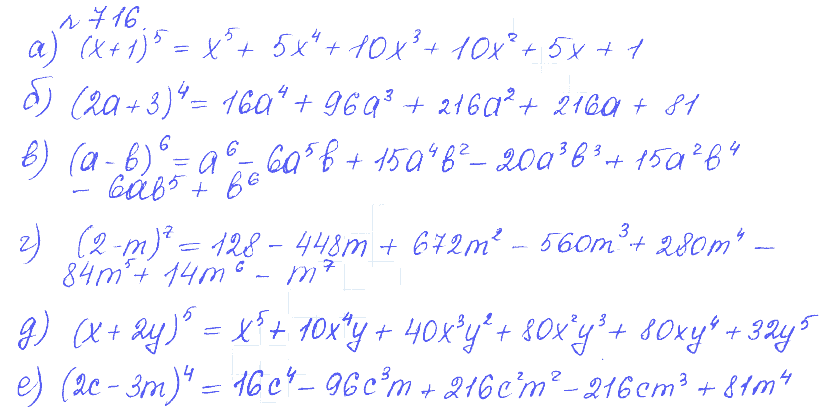 № 716.
а) (x+1)⁵ = x⁵ + 5x⁴ + 10x³ + 10x² + 5x + 1
б) (2a+3)⁴ = 16a⁴ + 96a³ + 216a² + 216a + 81
в) (a-b)⁶ = a⁶ - 6a⁵b + 15a⁴b² - 20a³b³ + 15a²b⁴
- 6ab⁵ + b⁶
г) (2-m)⁷ = 128 - 448m + 672m² - 560m³ + 280m⁴ -
84m⁵ + 14m⁶ - m⁷
д) (x+2y)⁵ = x⁵ + 10x⁴y + 40x³y² + 80x²y³ + 80xy⁴ + 32y⁵
е) (2c-3m)⁴ = 16c⁴ - 96c³m + 216c²m² - 216cm³ + 81m⁴